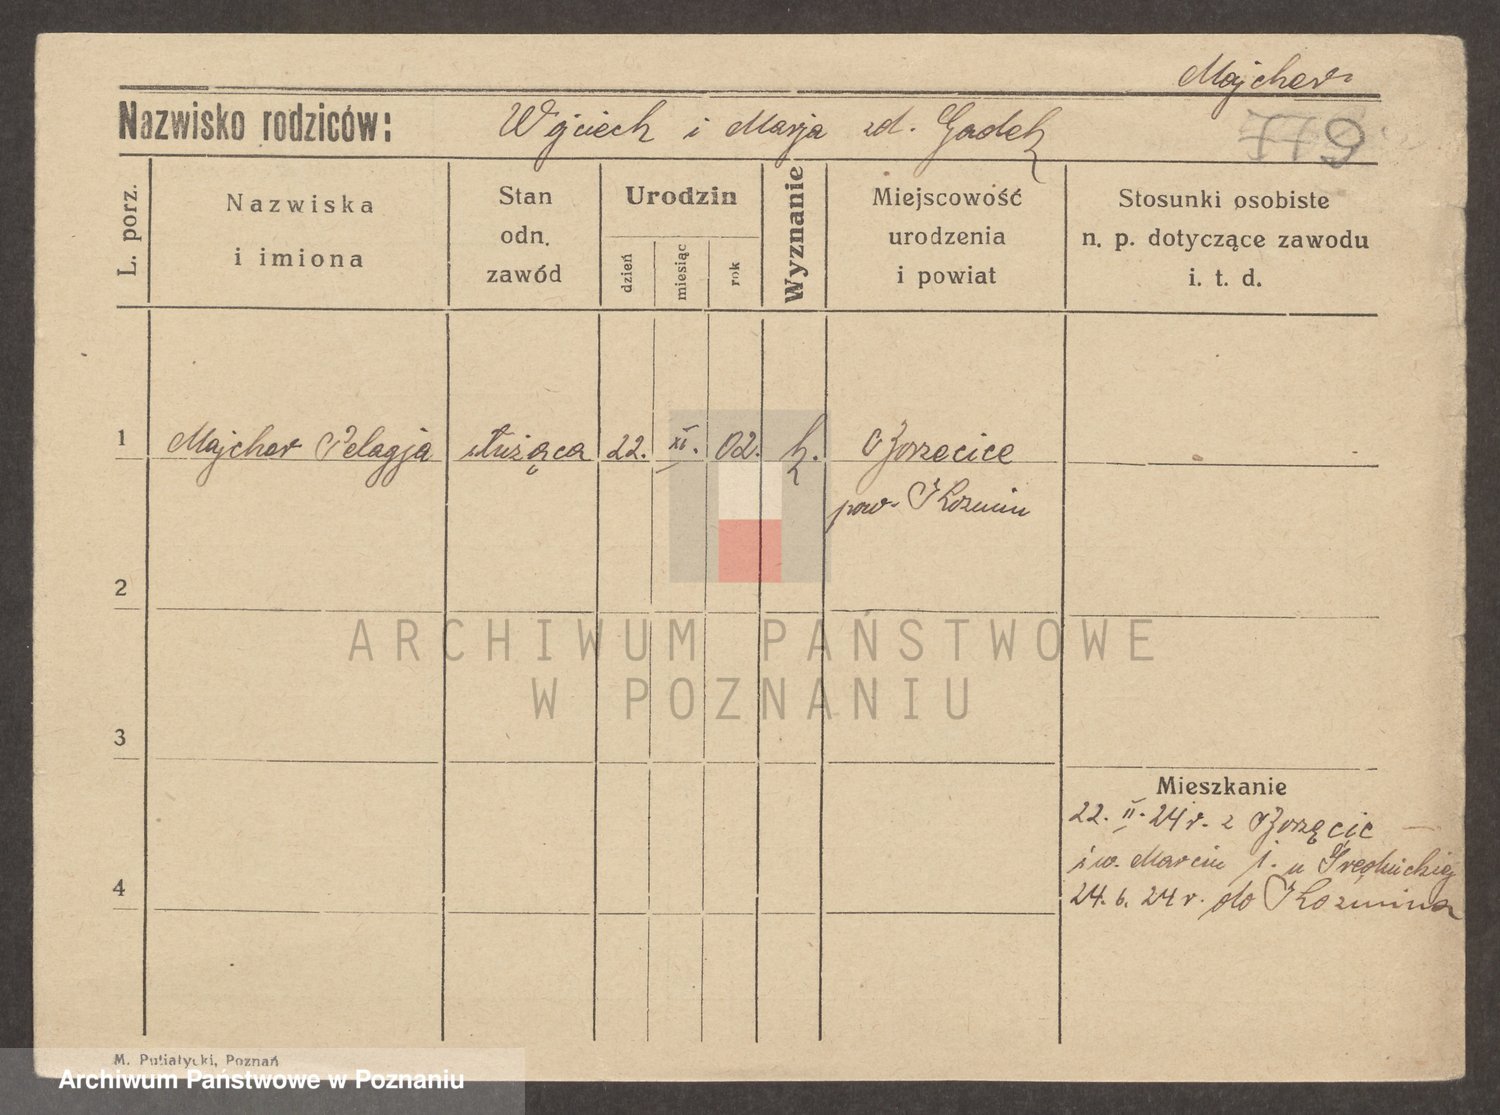 Majcher
Nazwisko rodziców: Wojciech i Marja zd. Gadek
119
L. porz.
Nazwiska
i imiona
Stan
odn.
zawód
Urodzin
dzień
miesiąc
rok
Wyznanie
Miejscowość
urodzenia
i powiat
Stosunki osobiste
n. p. dotyczące zawodu
i. t. d.
1 Majcher Pelagja służąca 22. XI. 02. k. Borzecice
pow. Kozmin
2
3
4
Mieszkanie
22. II. 24 r. z Borzęcic
św. Marcin u
24. 6. 24 r. do Kozmina
ARCHIWUM PAŃSTWOWE
W POZNANIU
M. Putiatycki, Poznań
Archiwum Państwowe w Poznaniu